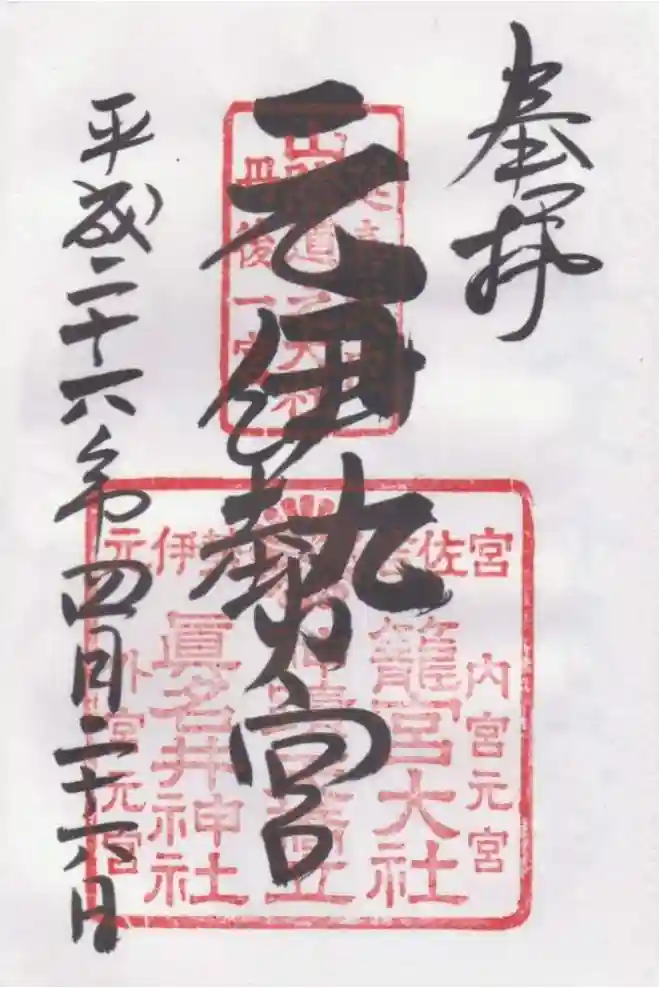 奉拝
元伊勢宮
平成二十六年四月二十六日
山陰道一大社
丹後一宮
元伊勢
佐宮
内宮元宮
籠宮大社
眞名井神社
外宮元宮